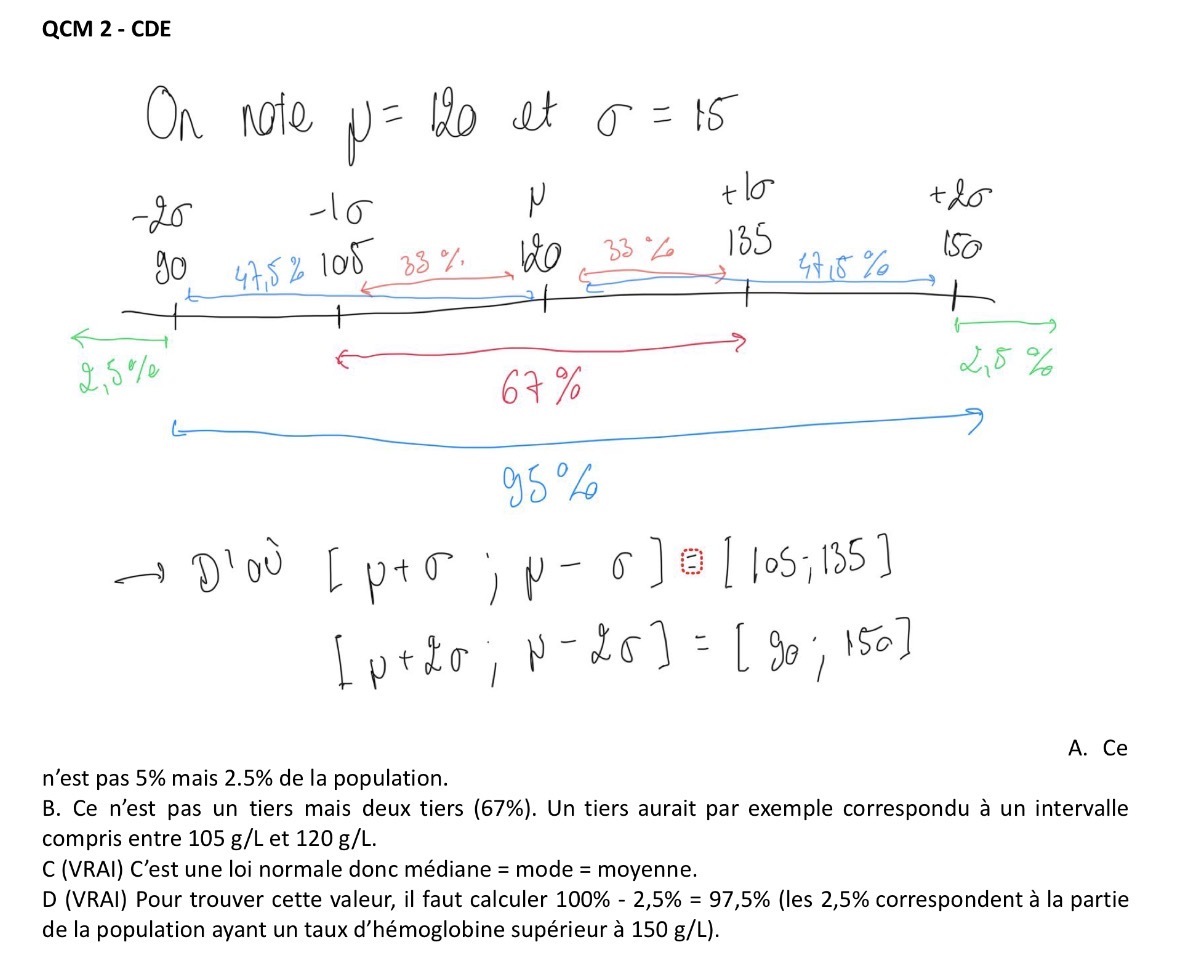 QCM 2 - CDE
On note μ = 120 et σ = 15
-2σ -1σ μ +1σ +2σ
90 47,5 % 105 33 % 120 33 % 135 47,5 % 150
2,5 % 67 % 2,5 %
95 %
→ D'où [ μ + σ ; μ - σ ] = [ 105 ; 135 ]
[ μ + 2σ ; μ - 2σ ] = [ 90 ; 150 ]
A. Ce
n’est pas 5% mais 2.5% de la population.
B. Ce n’est pas un tiers mais deux tiers (67%). Un tiers aurait par exemple correspondu à un intervalle
compris entre 105 g/L et 120 g/L.
C (VRAI) C’est une loi normale donc médiane = mode = moyenne.
D (VRAI) Pour trouver cette valeur, il faut calculer 100% - 2,5% = 97,5% (les 2,5% correspondent à la partie
de la population ayant un taux d’hémoglobine supérieur à 150 g/L).